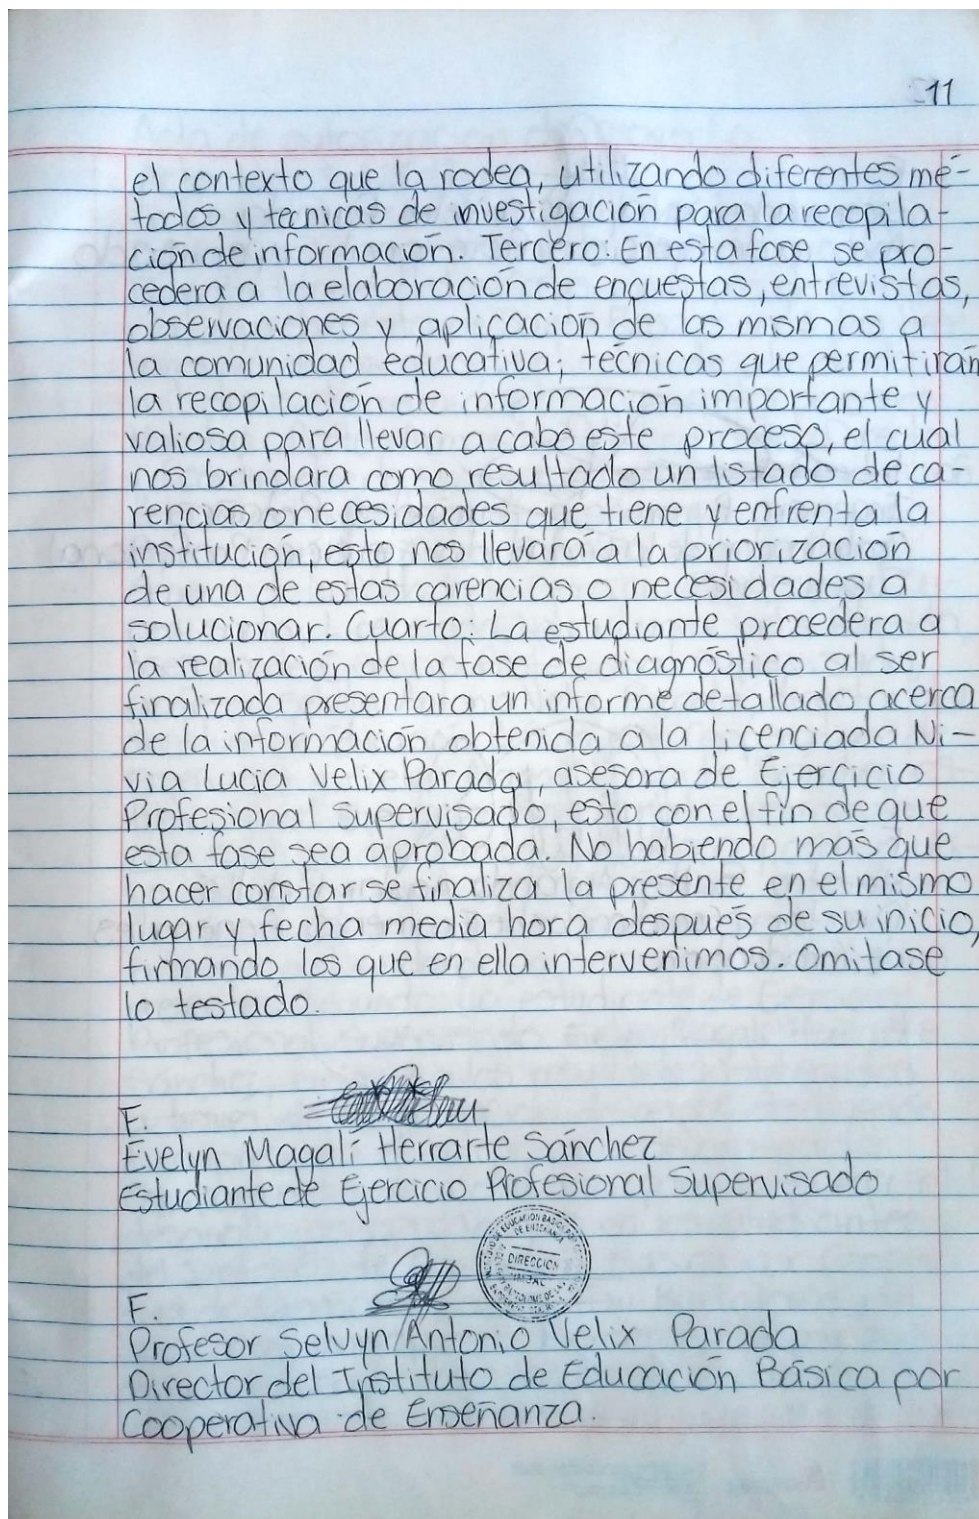 11
el contexto que la rodea, utilizando diferentes mé-
todos y tecnicas de investigación para la recopila-
ción de información. Tercero: En esta fase se pro-
cedera a la elaboración de encuestas, entrevistas,
observaciones y aplicación de las mismas a
la comunidad educativa; técnicas que permitirán
la recopilación de información importante y
valiosa para llevar a cabo este proceso, el cual
nos brindara como resultado un listado de ca-
rencias o necesidades que tiene y enfrenta la
institución, esto nos llevará a la priorización
de una de estas carencias o necesidades a
solucionar. Cuarto: La estudiante procedera a
la realización de la fase de diagnóstico al ser
finalizada presentara un informe detallado acerca
de la información obtenida a la licenciada Ni-
via Lucia Velix Parada, asesora de Ejercicio
Profesional Supervisado, esto con el fin de que
esta fase sea aprobada. No habiendo más que
hacer constar se finaliza la presente en el mismo
lugar y fecha media hora después de su inicio,
firmando los que en ella intervenimos. Omitase
lo testado.
F.
Evelyn Magalí Herrarte Sánchez
Estudiante de Ejercicio Profesional Supervisado
DE ENSEÑANZA
DIRECCION
F.
Profesor Selvyn Antonio Velix Parada
Director del Instituto de Educación Básica por
Cooperativa de Enseñanza.